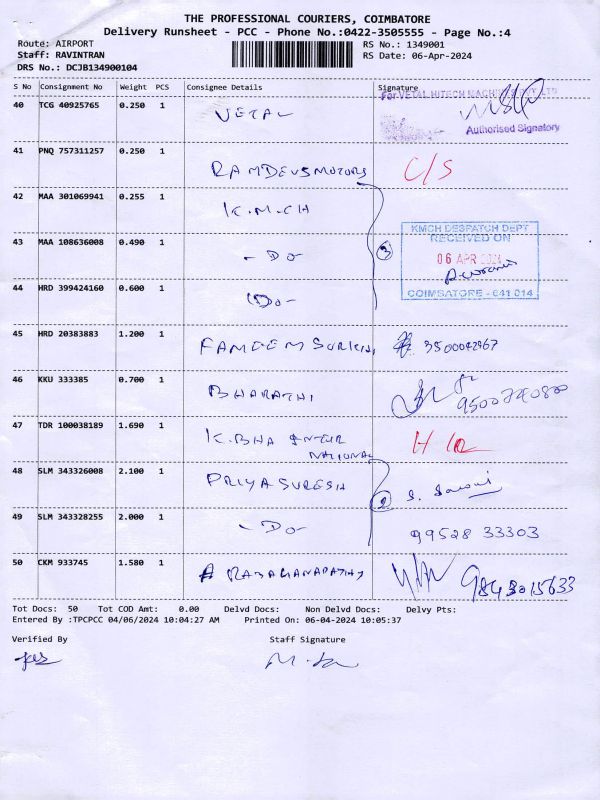 THE PROFESSIONAL COURIERS, COIMBATORE
Delivery Runsheet - PCC - Phone No.:0422-3505555 - Page No.:4
Route: AIRPORT RS No.: 1349001
Staff: RAVINTRAN RS Date: 06-Apr-2024
DRS No.: DCJB134900104
S No Consignment No Weight PCS Consignee Details Signature
For VETAL HITECH MACHINERY PVT LTD
40 TCG 40925765 0.250 1 VETAL
Authorised Signatory
41 PNQ 757311257 0.250 1 RAMDEVS MOTORS C/S
42 MAA 301069941 0.255 1 K.M.CH
KMCH DESPATCH DEPT
RECEIVED ON
43 MAA 108636008 0.490 1 - Do - 3
06 APR 2024
44 HRD 399424160 0.600 1 - Do -
COIMBATORE - 641 014
45 HRD 20383883 1.200 1 3500042967
46 KKU 333385 0.700 1 BHARATHI
47 TDR 100038189 1.690 1 K.BHA
NATIONAL
48 SLM 343326008 2.100 1 PRIYA SURESH 2
49 SLM 343328255 2.000 1 - Do - 99528 33303
50 CKM 933745 1.580 1 9843015633
Tot Docs: 50 Tot COD Amt: 0.00 Delvd Docs: Non Delvd Docs: Delvy Pts:
Entered By :TPCPCC 04/06/2024 10:04:27 AM Printed On: 06-04-2024 10:05:37
Verified By Staff Signature